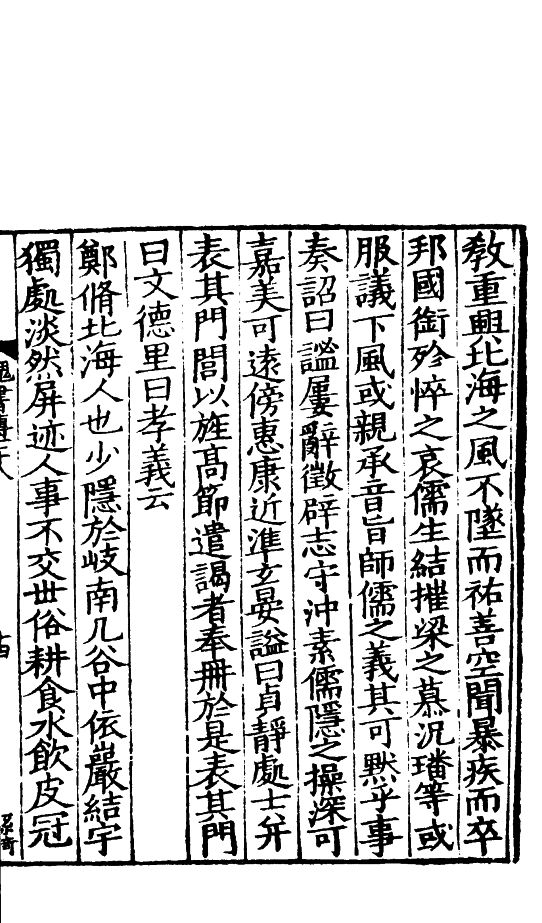 敎重興北海之風不墜而祐善空聞暴疾而卒
邦國銜殄悴之哀儒生結摧梁之慕況璠等或
服議下風或親承音旨師儒之義其可默乎事
奏詔曰謐屢辭徵辟志守沖素儒隱之操深可
嘉美可遠傍惠康近準玄晏謚曰貞靜處士幷
表其門閭以旌高節遣謁者奉冊於是表其門
曰文德里曰孝義云
鄭脩北海人也少隱於岐南几谷中依巖結宇
獨處淡然屏迹人事不交世俗耕食水飲皮冠